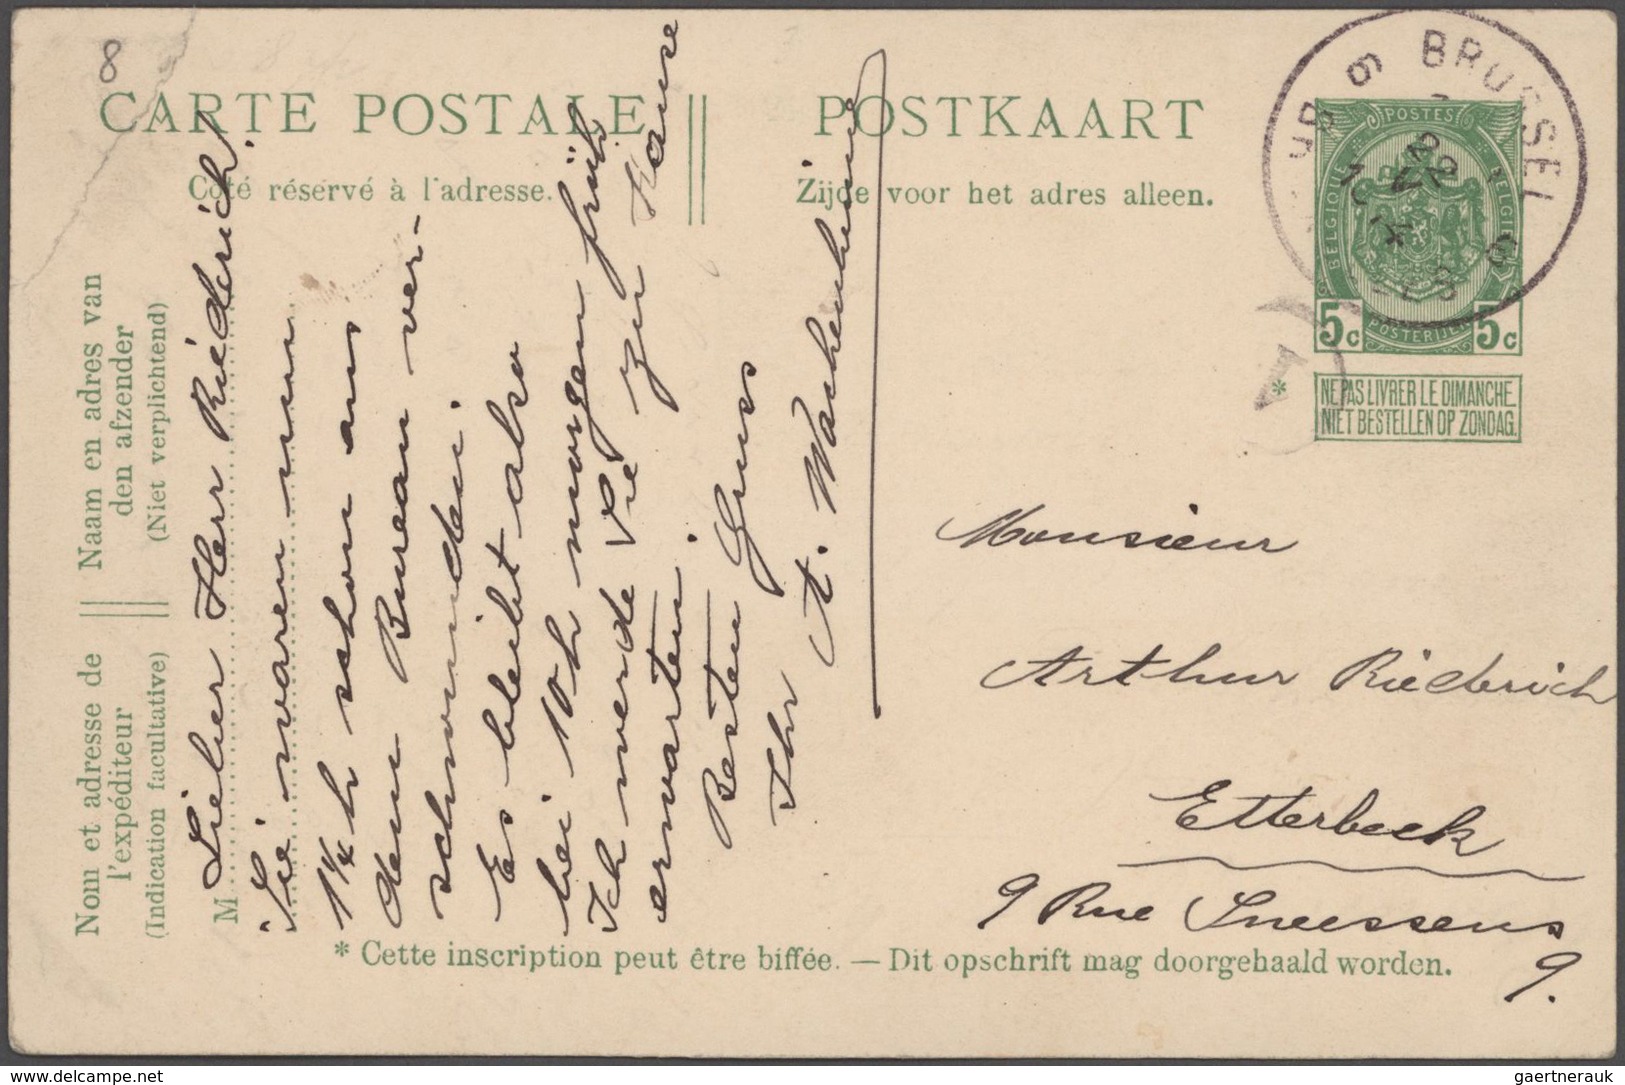 8
CARTE POSTALE
Côté réservé à l'adresse.
POSTKAART
Zijde voor het adres alleen.
BRUSSEL
6
22
6
POSTES
BELGIQUE
BELGIE
POSTERIJEN
5c 5c
*
NE PAS LIVRER LE DIMANCHE.
NIET BESTELLEN OP ZONDAG.
1
Nom et adresse de
l'expéditeur
(Indication facultative)
Naam en adres van
den afzender
(Niet verplichtend)
M
Lieber Herr Riederich!
Sie waren nun
1¼h schon aus
dem Bureau ver-
schwunden.
Es bleibt also
bei 10h morgen früh
Ich werde Sie zu Hause
erwarten.
Besten Gruss
Ihr
A.
Monsieur
Arthur Riederich
Etterbeek
9 Rue Sneessens
9.
* Cette inscription peut être biffée. — Dit opschrift mag doorgehaald worden.
gaertnerauk